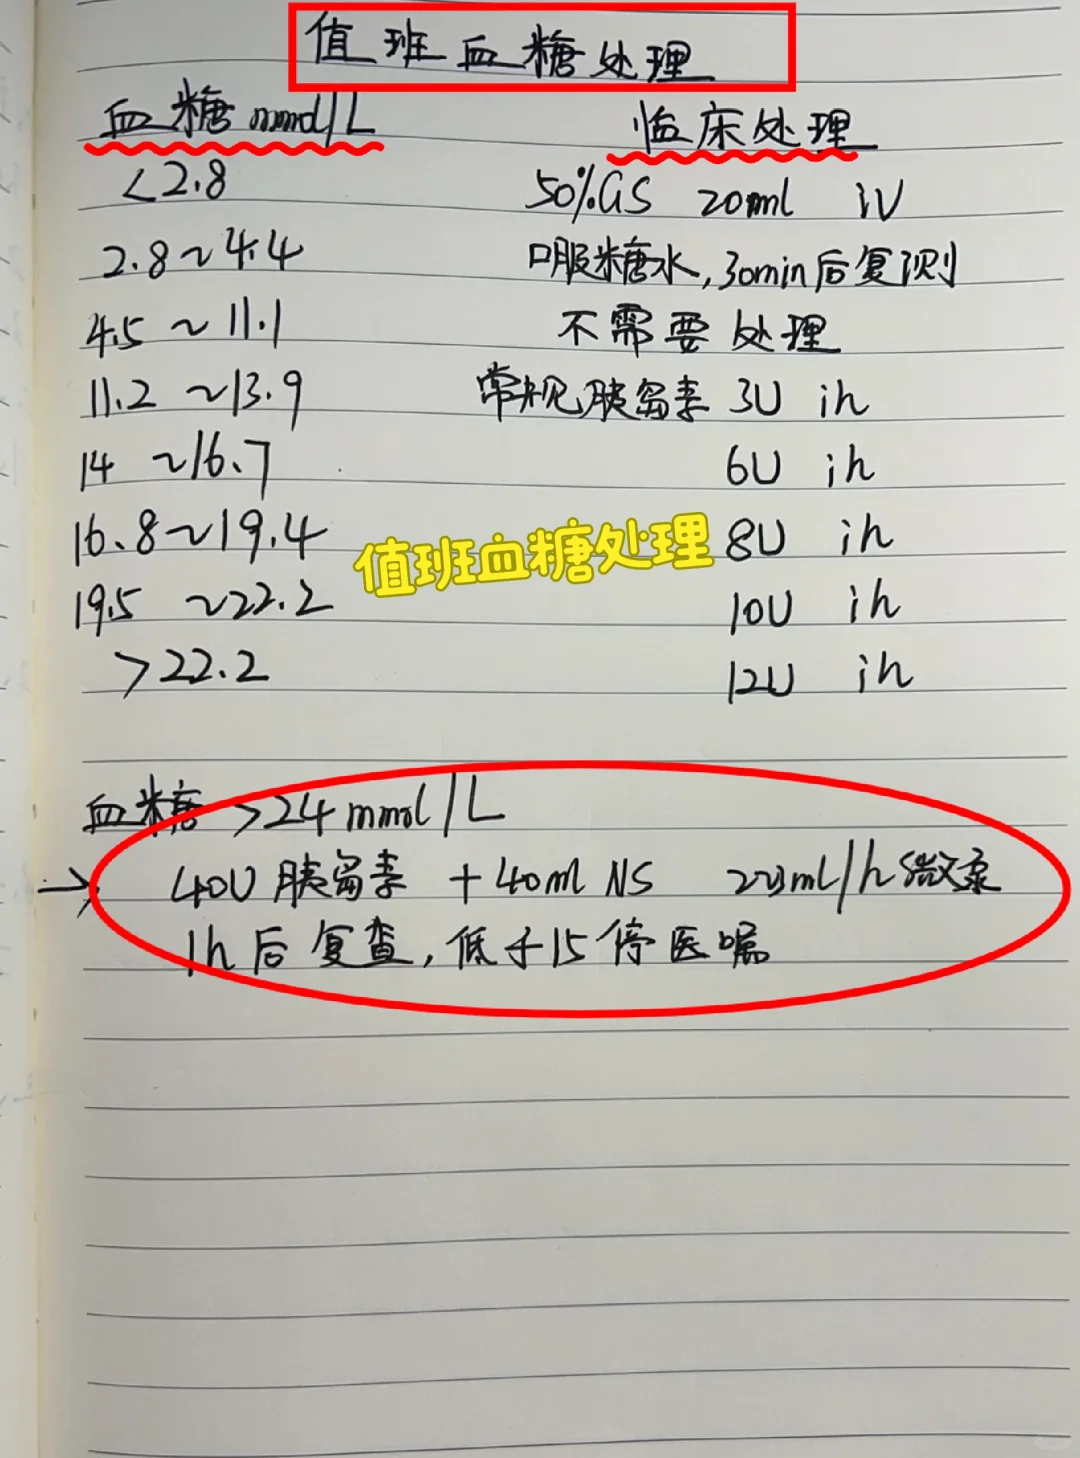 值班血糖处理
血糖 mmol/L 临床处理
<2.8 50%GS 20ml iv
2.8~4.4 口服糖水,30min后复测
4.5~11.1 不需要处理
11.2~13.9 常规胰岛素 3U ih
14~16.7 6U ih
16.8~19.4 8U ih
值班血糖处理
19.5~22.2 10U ih
>22.2 12U ih
血糖 >24mmol/L
→ 40U胰岛素 +40ml NS ml/h 微泵
1h后复查,低于15停医嘱